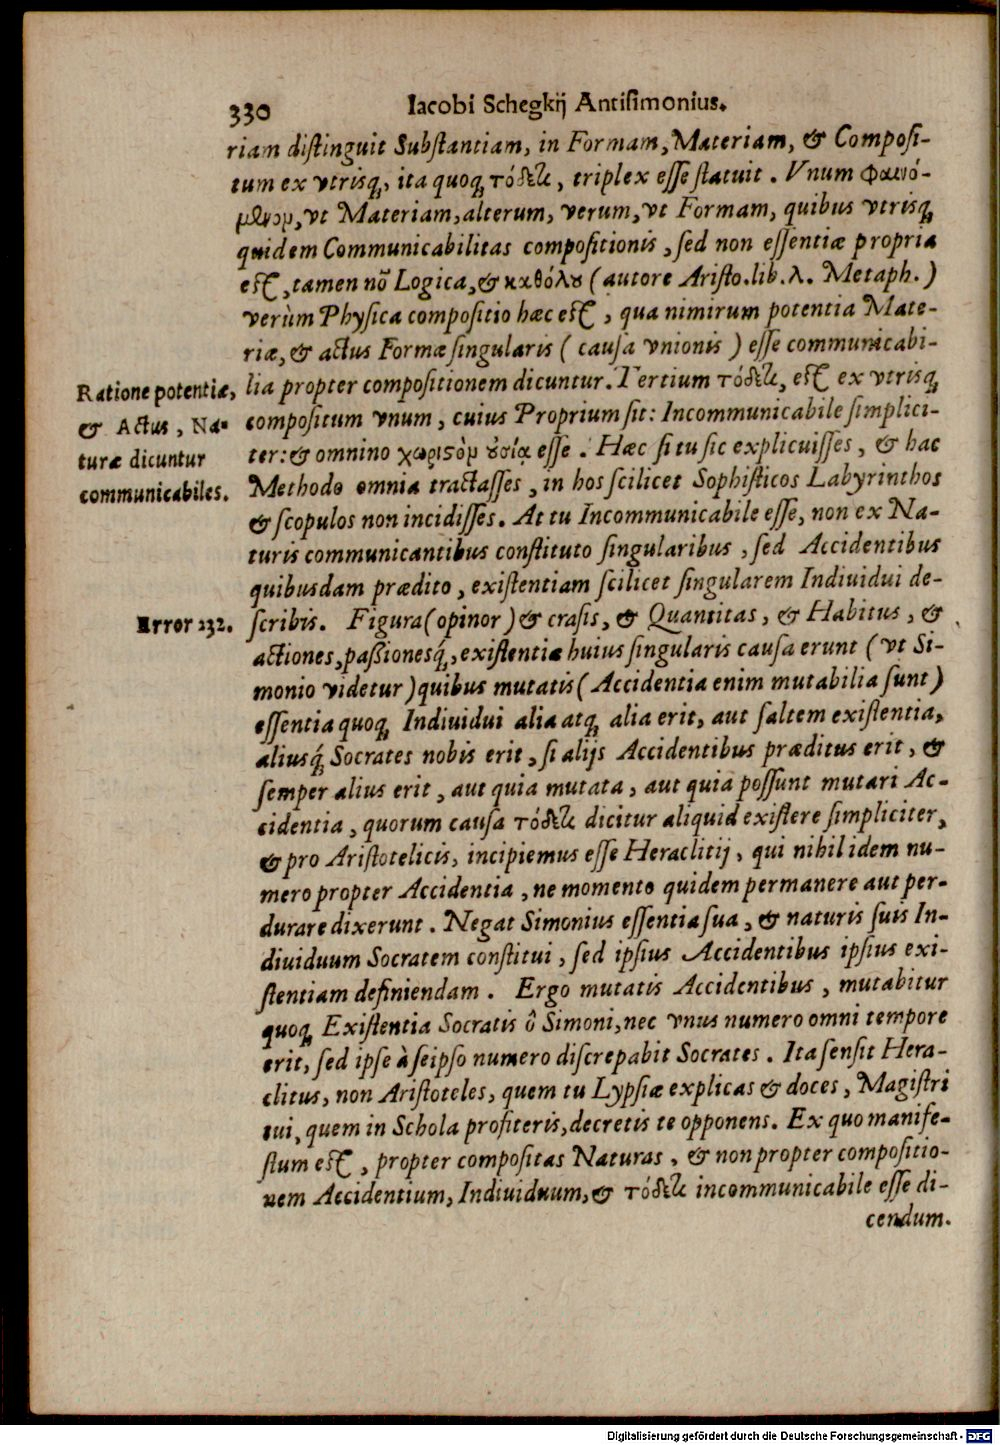 330 Iacobi Schegkij Antisimonius.
riam distinguit Substantiam, in Formam, Materiam, & Composi-
tum ex vtrisq́, ita quoq́ τόδε τι, triplex esse statuit. Vnum φαινό-
μενον, vt Materiam, alterum, verum, vt Formam, quibus vtrisq́
quidem Communicabilitas compositionis, sed non essentiæ propria
est, tamen nō Logica, & καθόλου (autore Aristo. lib. λ. Metaph.)
verùm Physica compositio hæc est, qua nimirum potentia Mate-
riæ, & actus Formæ singularis (causa vnionis) esse communicabi-
Ratione potentiæ,
& Actus, Na-
turæ dicuntur
communicabiles.
lia propter compositionem dicuntur. Tertium τόδε τι, est ex vtrisq́
compositum vnum, cuius Proprium sit: Incommunicabile simplici-
ter: & omnino χωριστὸν οὐσίᾳ esse. Hæc si tu sic explicuisses, & hac
Methodo omnia tractasses, in hos scilicet Sophisticos Labyrinthos
& scopulos non incidisses. At tu Incommunicabile esse, non ex Na-
turis communicantibus constituto singularibus, sed Accidentibus
quibusdam prædito, existentiam scilicet singularem Indiuidui de-
Error 232.
scribis. Figura (opinor) & crasis, & Quantitas, & Habitus, &
actiones, passionesq́, existentiæ huius singularis causa erunt (vt Si-
monio videtur) quibus mutatis (Accidentia enim mutabilia sunt)
essentia quoq́ Indiuidui alia atq́ alia erit, aut saltem existentia,
aliusq́ Socrates nobis erit, si alijs Accidentibus præditus erit, &
semper alius erit, aut quia mutata, aut quia possunt mutari Ac-
cidentia, quorum causa τόδε τι dicitur aliquid existere simpliciter,
& pro Aristotelicis, incipiemus esse Heraclitij, qui nihil idem nu-
mero propter Accidentia, ne momento quidem permanere aut per-
durare dixerunt. Negat Simonius essentia sua, & naturis suis In-
diuiduum Socratem constitui, sed ipsius Accidentibus ipsius exi-
stentiam definiendam. Ergo mutatis Accidentibus, mutabitur
quoq́ Existentia Socratis ô Simoni, nec vnus numero omni tempore
erit, sed ipse à seipso numero discrepabit Socrates. Ita sensit Hera-
clitus, non Aristoteles, quem tu Lypsiæ explicas & doces, Magistri
tui, quem in Schola profiteris, decretis te opponens. Ex quo manife-
stum est, propter compositas Naturas, & non propter compositio-
nem Accidentium, Indiuiduum, & τόδε τι incommunicabile esse di-
cendum.
Digitalisierung gefördert durch die Deutsche Forschungsgemeinschaft - DFG